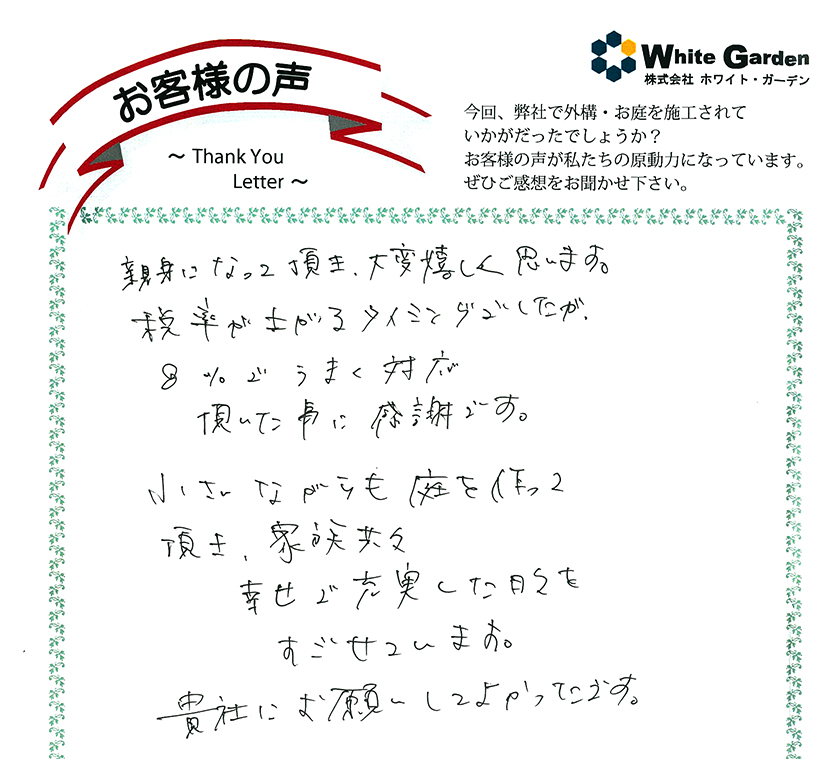 お客様の声
～ Thank You
Letter ～
White Garden
株式会社 ホワイト・ガーデン
今回、弊社で外構・お庭を施工されて
いかがだったでしょうか？
お客様の声が私たちの原動力になっています。
ぜひご感想をお聞かせ下さい。
親身になって頂き、大変嬉しく思います。
税率が上がるタイミングでしたが、
8%でうまく対応
頂いた事に感謝です。
小さいながらも庭を作って
頂き、家族共々
幸せで充実した日々を
すごせています。
貴社にお願いしてよかったです。